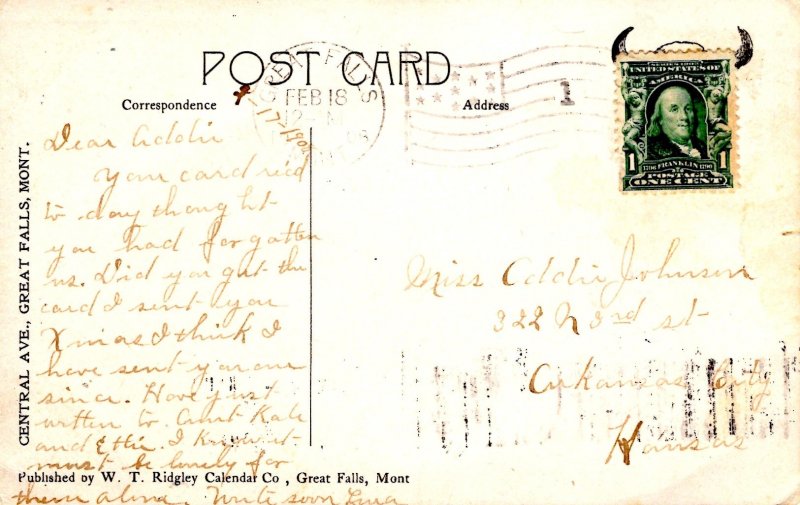 POST CARD
Correspondence
Address
GREAT FALLS
FEB 18
12 M
MONT.
17-1908
1
SERIES 1902
UNITED STATES OF
AMERICA
1706 FRANKLIN 1790
POSTAGE
1 ONE CENT 1
CENTRAL AVE., GREAT FALLS, MONT.
Dear Addie
Your card rec'd
to day thought
you had forgotten
us. Did you get the
card I sent you
Xmas I think I
have sent you one
since. Have just
written to Aunt Kate
and Effie. I know it
must be lonely for
them alone. Write soon
Miss Addie Johnson
322 N 3rd st
Arkansas City
Kansas
Published by W. T. Ridgley Calendar Co , Great Falls, Mont